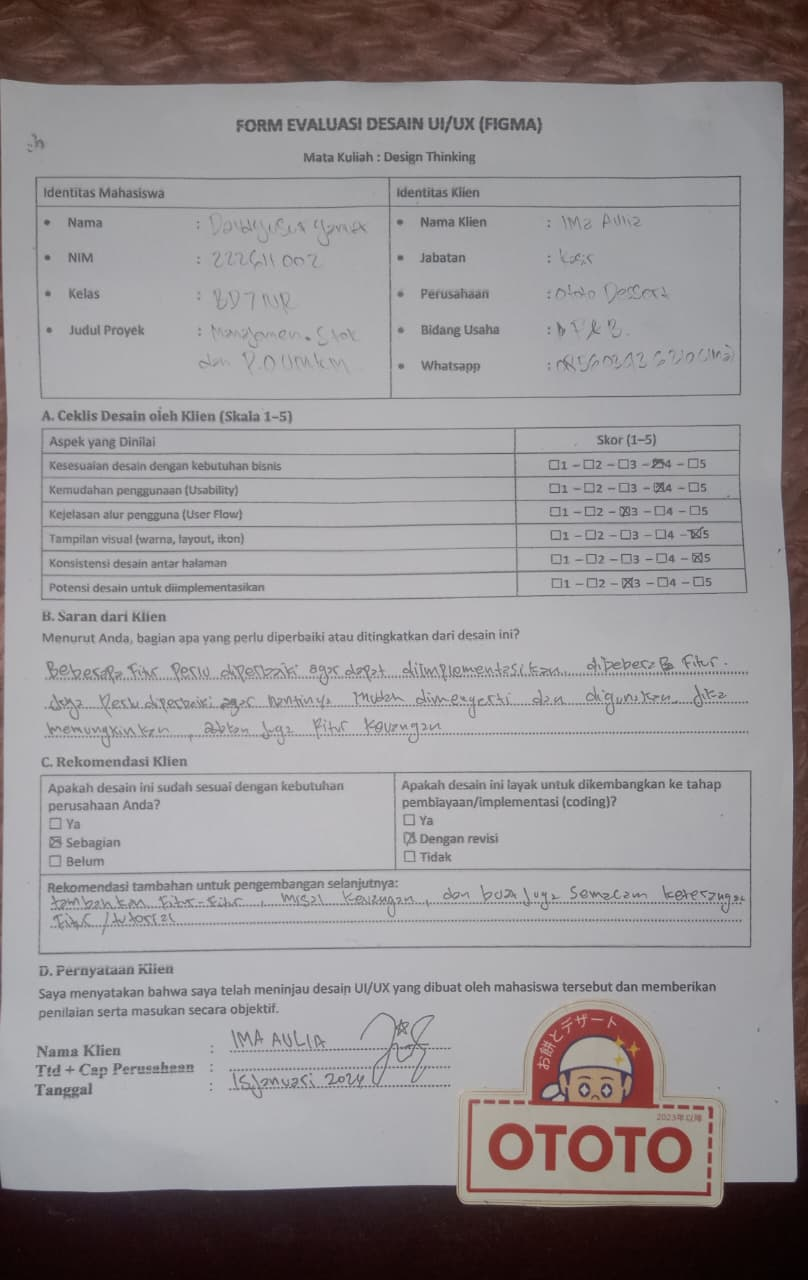 FORM EVALUASI DESAIN UI/UX (FIGMA)
Mata Kuliah : Design Thinking
Identitas Mahasiswa
• Nama :
• NIM : 222611002
• Kelas : BD7NR
• Judul Proyek : Manajemen Stok
dan P.O UMKM
Identitas Klien
• Nama Klien : IMa Aulia
• Jabatan : Kasir
• Perusahaan : Ototo Dessert
• Bidang Usaha : F&B.
• Whatsapp :
A. Ceklis Desain oleh Klien (Skala 1–5)
Aspek yang Dinilai Skor (1–5)
Kesesuaian desain dengan kebutuhan bisnis ☐1 – ☐2 – ☐3 – ☒4 – ☐5
Kemudahan penggunaan (Usability) ☐1 – ☐2 – ☐3 – ☒4 – ☐5
Kejelasan alur pengguna (User Flow) ☐1 – ☐2 – ☒3 – ☐4 – ☐5
Tampilan visual (warna, layout, ikon) ☐1 – ☐2 – ☐3 – ☐4 – ☒5
Konsistensi desain antar halaman ☐1 – ☐2 – ☐3 – ☐4 – ☒5
Potensi desain untuk diimplementasikan ☐1 – ☐2 – ☒3 – ☐4 – ☐5
B. Saran dari Klien
Menurut Anda, bagian apa yang perlu diperbaiki atau ditingkatkan dari desain ini?
Beberapa Fitur Perlu diperbaiki agar dapat diimplementasikan. dibeberapa Fitur
Juga Perlu diperbaiki agar nantinya mudah dimengerti dan digunakan. Jika
memungkinkan, juga Fitur keuangan
C. Rekomendasi Klien
Apakah desain ini sudah sesuai dengan kebutuhan
perusahaan Anda?
☐ Ya
☒ Sebagian
☐ Belum
Apakah desain ini layak untuk dikembangkan ke tahap
pembiayaan/implementasi (coding)?
☐ Ya
☒ Dengan revisi
☐ Tidak
Rekomendasi tambahan untuk pengembangan selanjutnya:
tambahkan Fitur-Fitur, misal keuangan, dan buat juga semacam keterangan
Fitur/tutorial
D. Pernyataan Klien
Saya menyatakan bahwa saya telah meninjau desain UI/UX yang dibuat oleh mahasiswa tersebut dan memberikan
penilaian serta masukan secara objektif.
Nama Klien : IMA AULIA
Ttd + Cap Perusahaan :
Tanggal : 15 Januari 2024
お餅とデザート
2023年以降
OTOTO